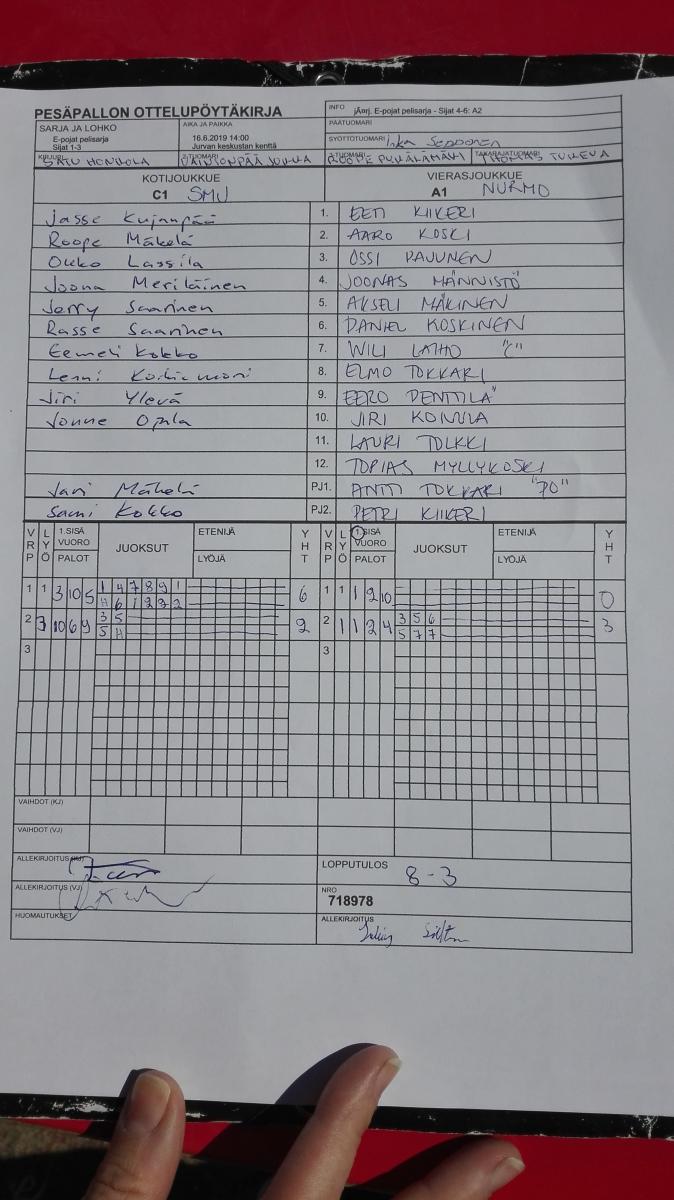 PESÄPALLON OTTELUPÖYTÄKIRJA
INFO jÄorj. E-pojat pelisarja - Sijat 4-6: A2
SARJA JA LOHKO
E-pojat pelisarja
Sijat 1-3
AIKA JA PAIKKA
16.6.2019 14:00
Jurvan keskustan kenttä
PÄÄTUOMARI
SYÖTTÖTUOMARI Inka Sepponen
KIRJURI SATU HONKOLA
2-TUOMARI VAINIONPÄÄ JUKKA
3-TUOMARI ROOPE
TAKARAJATUOMARI TUKEVA
KOTIJOUKKUE
C1 SMJ
VIERASJOUKKUE
A1 NURMO
Jasse Kujanpää 1. EETI KIIKERI
Roope Mäkelä 2. AARO KOSKI
Ouko Lassila 3. OSSI PAJUNEN
Joona Meriläinen 4. JOONAS MÄNNISTÖ
Jerry Saarinen 5. AKSELI MÄKINEN
Rasse Saarinen 6. DANIEL KOSKINEN
Eemeli Kokko 7. WILI LATHO "C"
Lenni 8. ELMO TOKKARI
Jiri Ylevä 9. EERO PENTTILÄ
Jonne Opala 10. JIRI KOIVULA
11. LAURI TOLKKI
12. TOPIAS MYLLYKOSKI
Jari Mäkelä PJ1. ANTTI TOKKARI "PO"
Sami Kokko PJ2. PETRI KIIKERI
VRP LYÖ 1.SISÄ VUORO PALOT JUOKSUT ETENIJÄ LYÖJÄ YHT VRP LYÖ 1.SISÄ VUORO PALOT JUOKSUT ETENIJÄ LYÖJÄ YHT
1 1 3 10 5 1 4 7 8 9 1 6 1 1 1 2 10 0
H 6 1 2 2 2
2 3 10 6 9 3 5 2 2 1 1 2 4 3 5 6 3
5 H 5 7 7
3 3
VAIHDOT (KJ)
VAIHDOT (VJ)
ALLEKIRJOITUS (KJ)
LOPPUTULOS 8-3
ALLEKIRJOITUS (VJ)
NRO
718978
HUOMAUTUKSET
ALLEKIRJOITUS